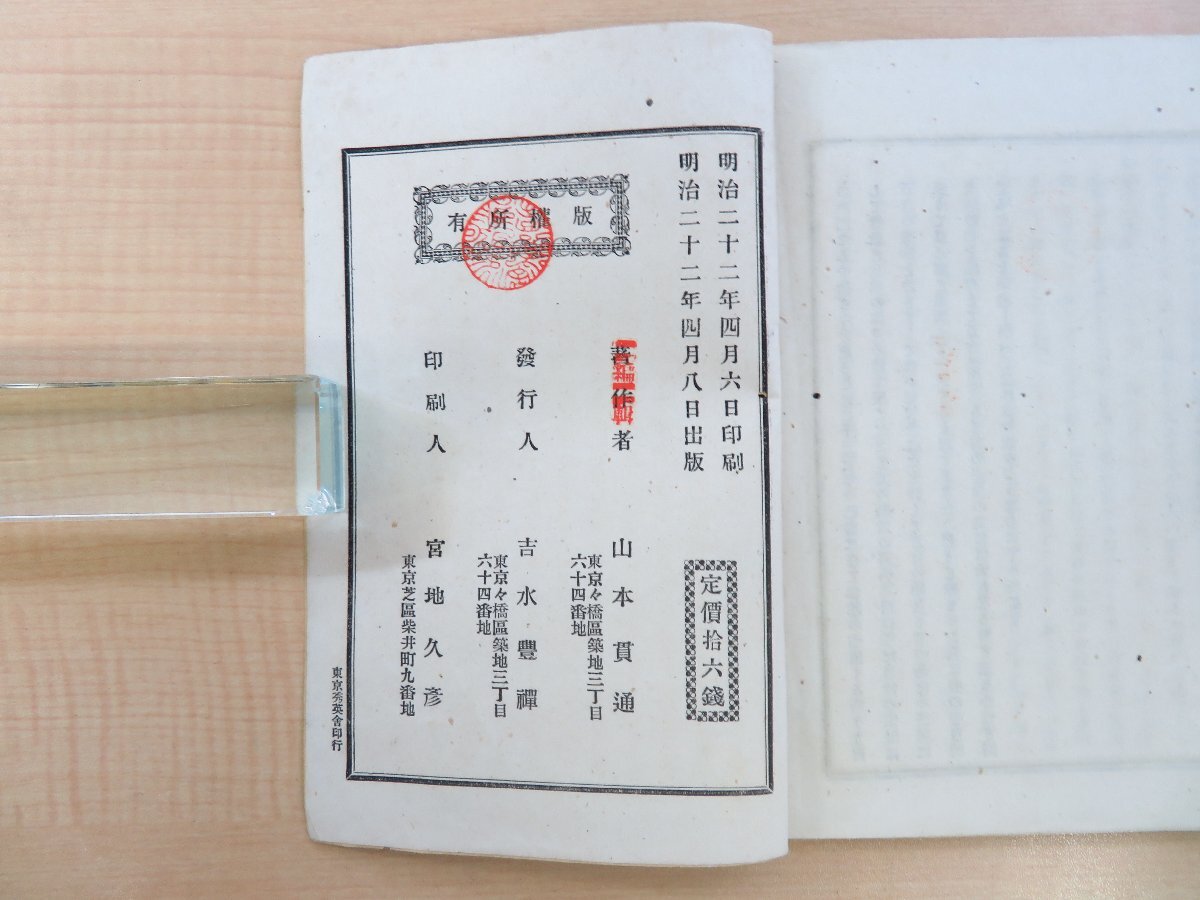 明治二十二年四月六日印刷
明治二十二年四月八日出版
定價拾六錢
版權所有
著作者
山本貫通
東京々橋區築地三丁目
六十四番地
發行人
吉水豐禪
東京々橋區築地三丁目
六十四番地
印刷人
宮地久彥
東京芝區柴井町九番地
東京秀英舍印行